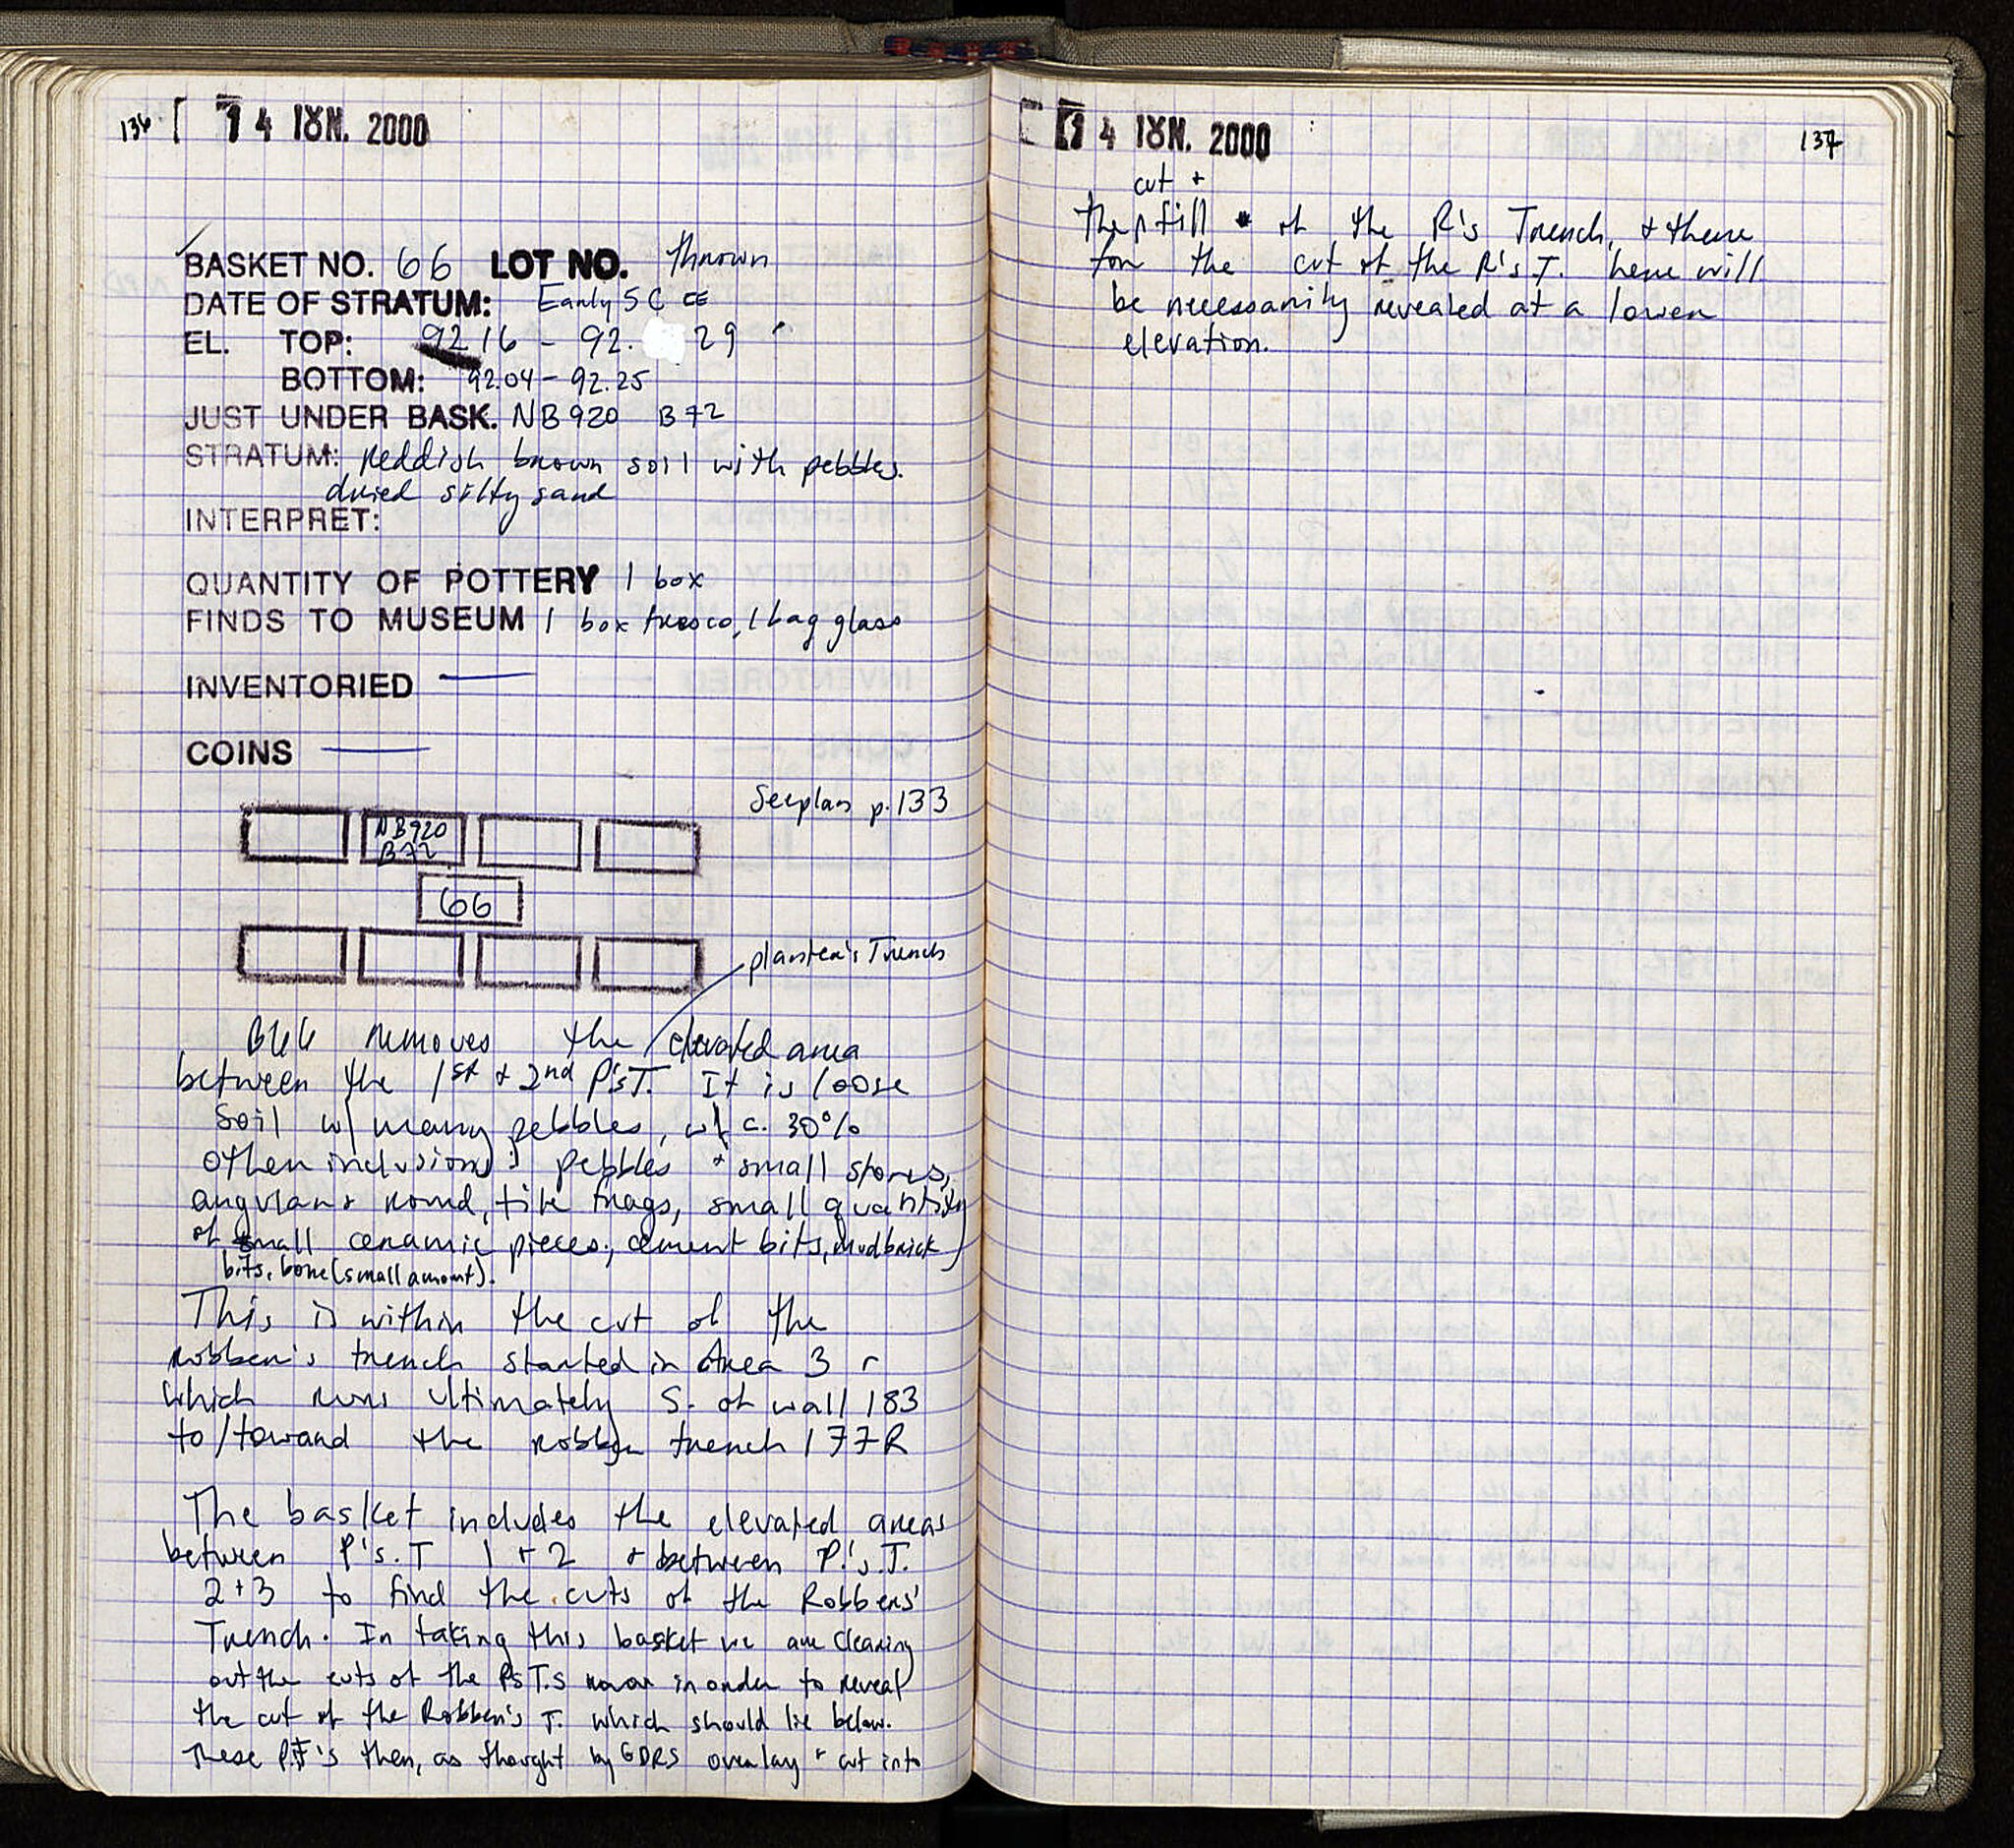 136 [ 14 ΙΟΥΝ. 2000
BASKET NO. 66 LOT NO. thrown
DATE OF STRATUM: Early 5 C CE
EL. TOP: 92.16 - 92. 29
BOTTOM: 92.04 - 92.25
JUST UNDER BASK. NB920 B72
STRATUM: reddish brown soil with pebbles.
dried silty sand
INTERPRET:
QUANTITY OF POTTERY 1 box
FINDS TO MUSEUM 1 box fresco, 1 bag glass
INVENTORIED —
COINS —
See plan p. 133
NB920
B72
66
planter's Trench
B66 removes the elevated area
between the 1st + 2nd P'sT. It is loose
soil w/ many pebbles, w/ c. 30%
other inclusions: pebbles + small stones,
angular + round, tile frags, small quantity
of small ceramic pieces, cement bits, mudbrick
bits, bone (small amount).
This is within the cut of the
robber's trench started in Area 3
which runs ultimately S. of wall 183
to/toward the robber trench 177R
The basket includes the elevated areas
between P's.T 1 + 2 + between P.'s.T.
2+3 to find the cuts of the Robbers'
Trench. In taking this basket we are cleaning
out the cuts of the PsT.s in order to reveal
the cut of the Robber's T. which should lie below.
These P.T's then, as thought by GDRS overlay + cut into
[ 14 ΙΟΥΝ. 2000 137
cut +
the ∧ fill of the R's Trench, + there
for the cut of the R's.T. here will
be necessarily revealed at a lower
elevation.